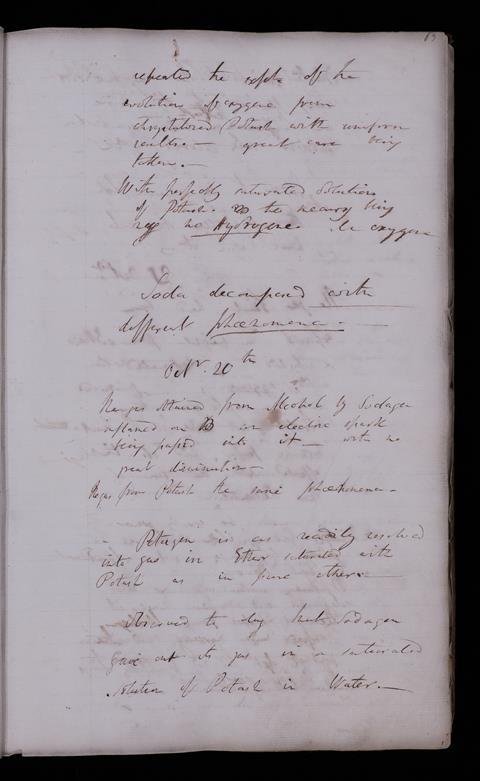 63
repeated the expts of the
evolution of oxygene from
chrystalized Potash with uniform
results. — great care being
taken. —
With perfectly saturated Solutions
of Potash. the mercury being
neg no Hydrogene. the oxygene
Soda decomposed with
different phœnomena. —
Octr. 20th
The gas obtained from Alcohol by Sodagen
inflamed on an electric spark
being passed into it — with no
great diminution —
The gas from Potash the same phœnomena. —
Potagen is as readily resolved
into gas in Ether saturated with
Potash as in pure ether. —
observed this day that Sodagen
gave out its gas in a saturated
solution of Potash in Water. —